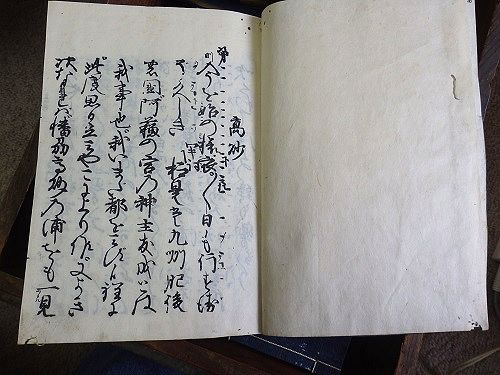 高砂
今を始の旅衣〳〵日も行末
そ久しき 抑是ハ九州肥後
国阿蘇の宮乃神主友成とハ
我事也我いまた都を見す候程に
此度思ひ立ミやこに上り候又よき
次なれハ播州高砂乃浦をも一見